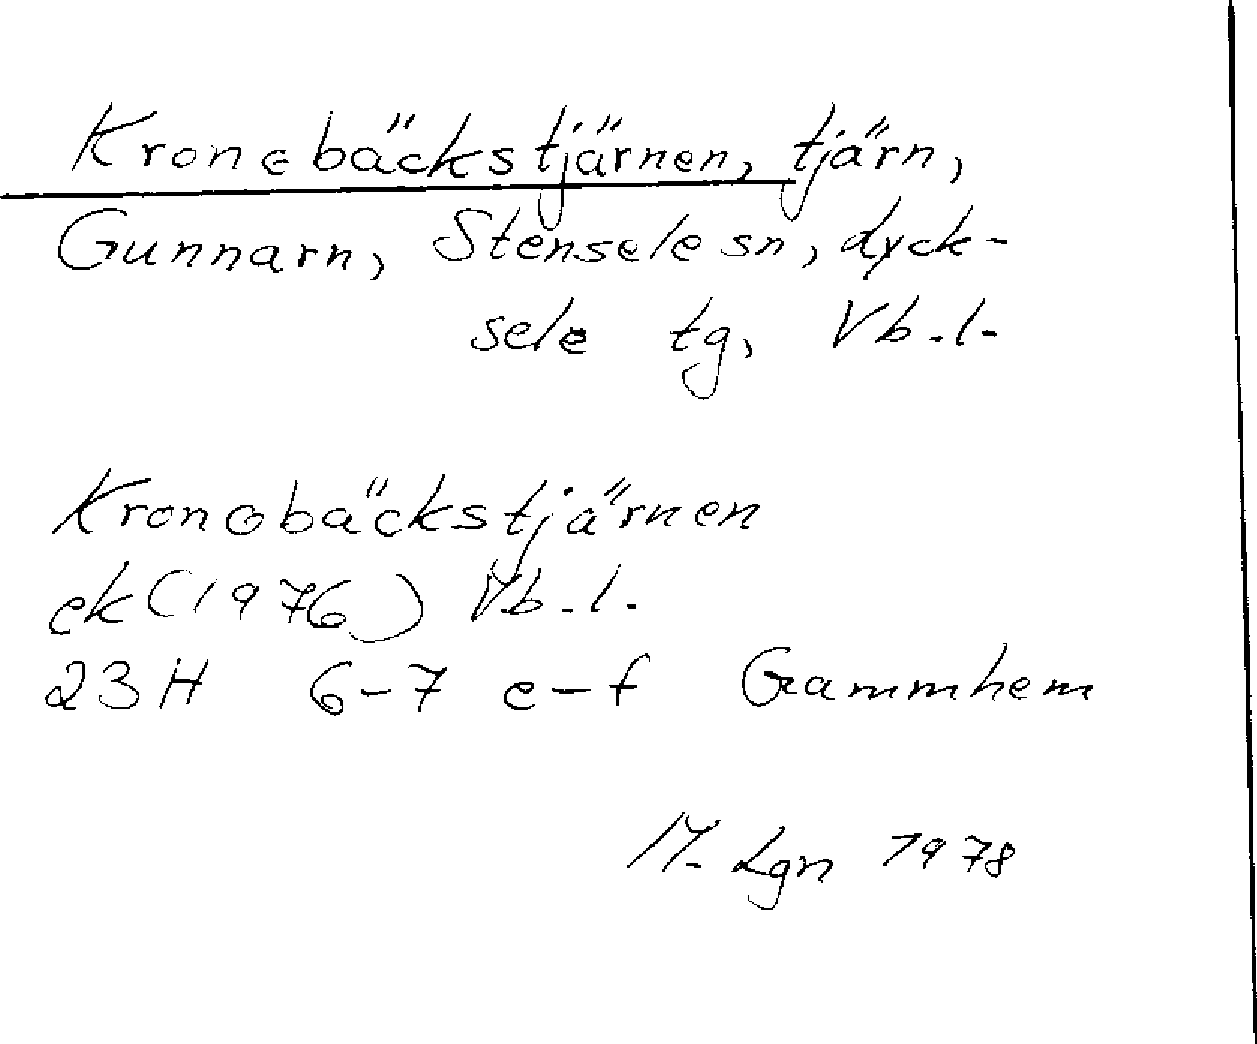 Kronobäckstjärnen, tjärn,
Gunnarn, Stensele sn, Lyck-
sele tg, Vb.l.
Kronobäckstjärnen
ek (1976) Vb.l.
23H 6-7 e-f Grammhem
M. Lgn 1978